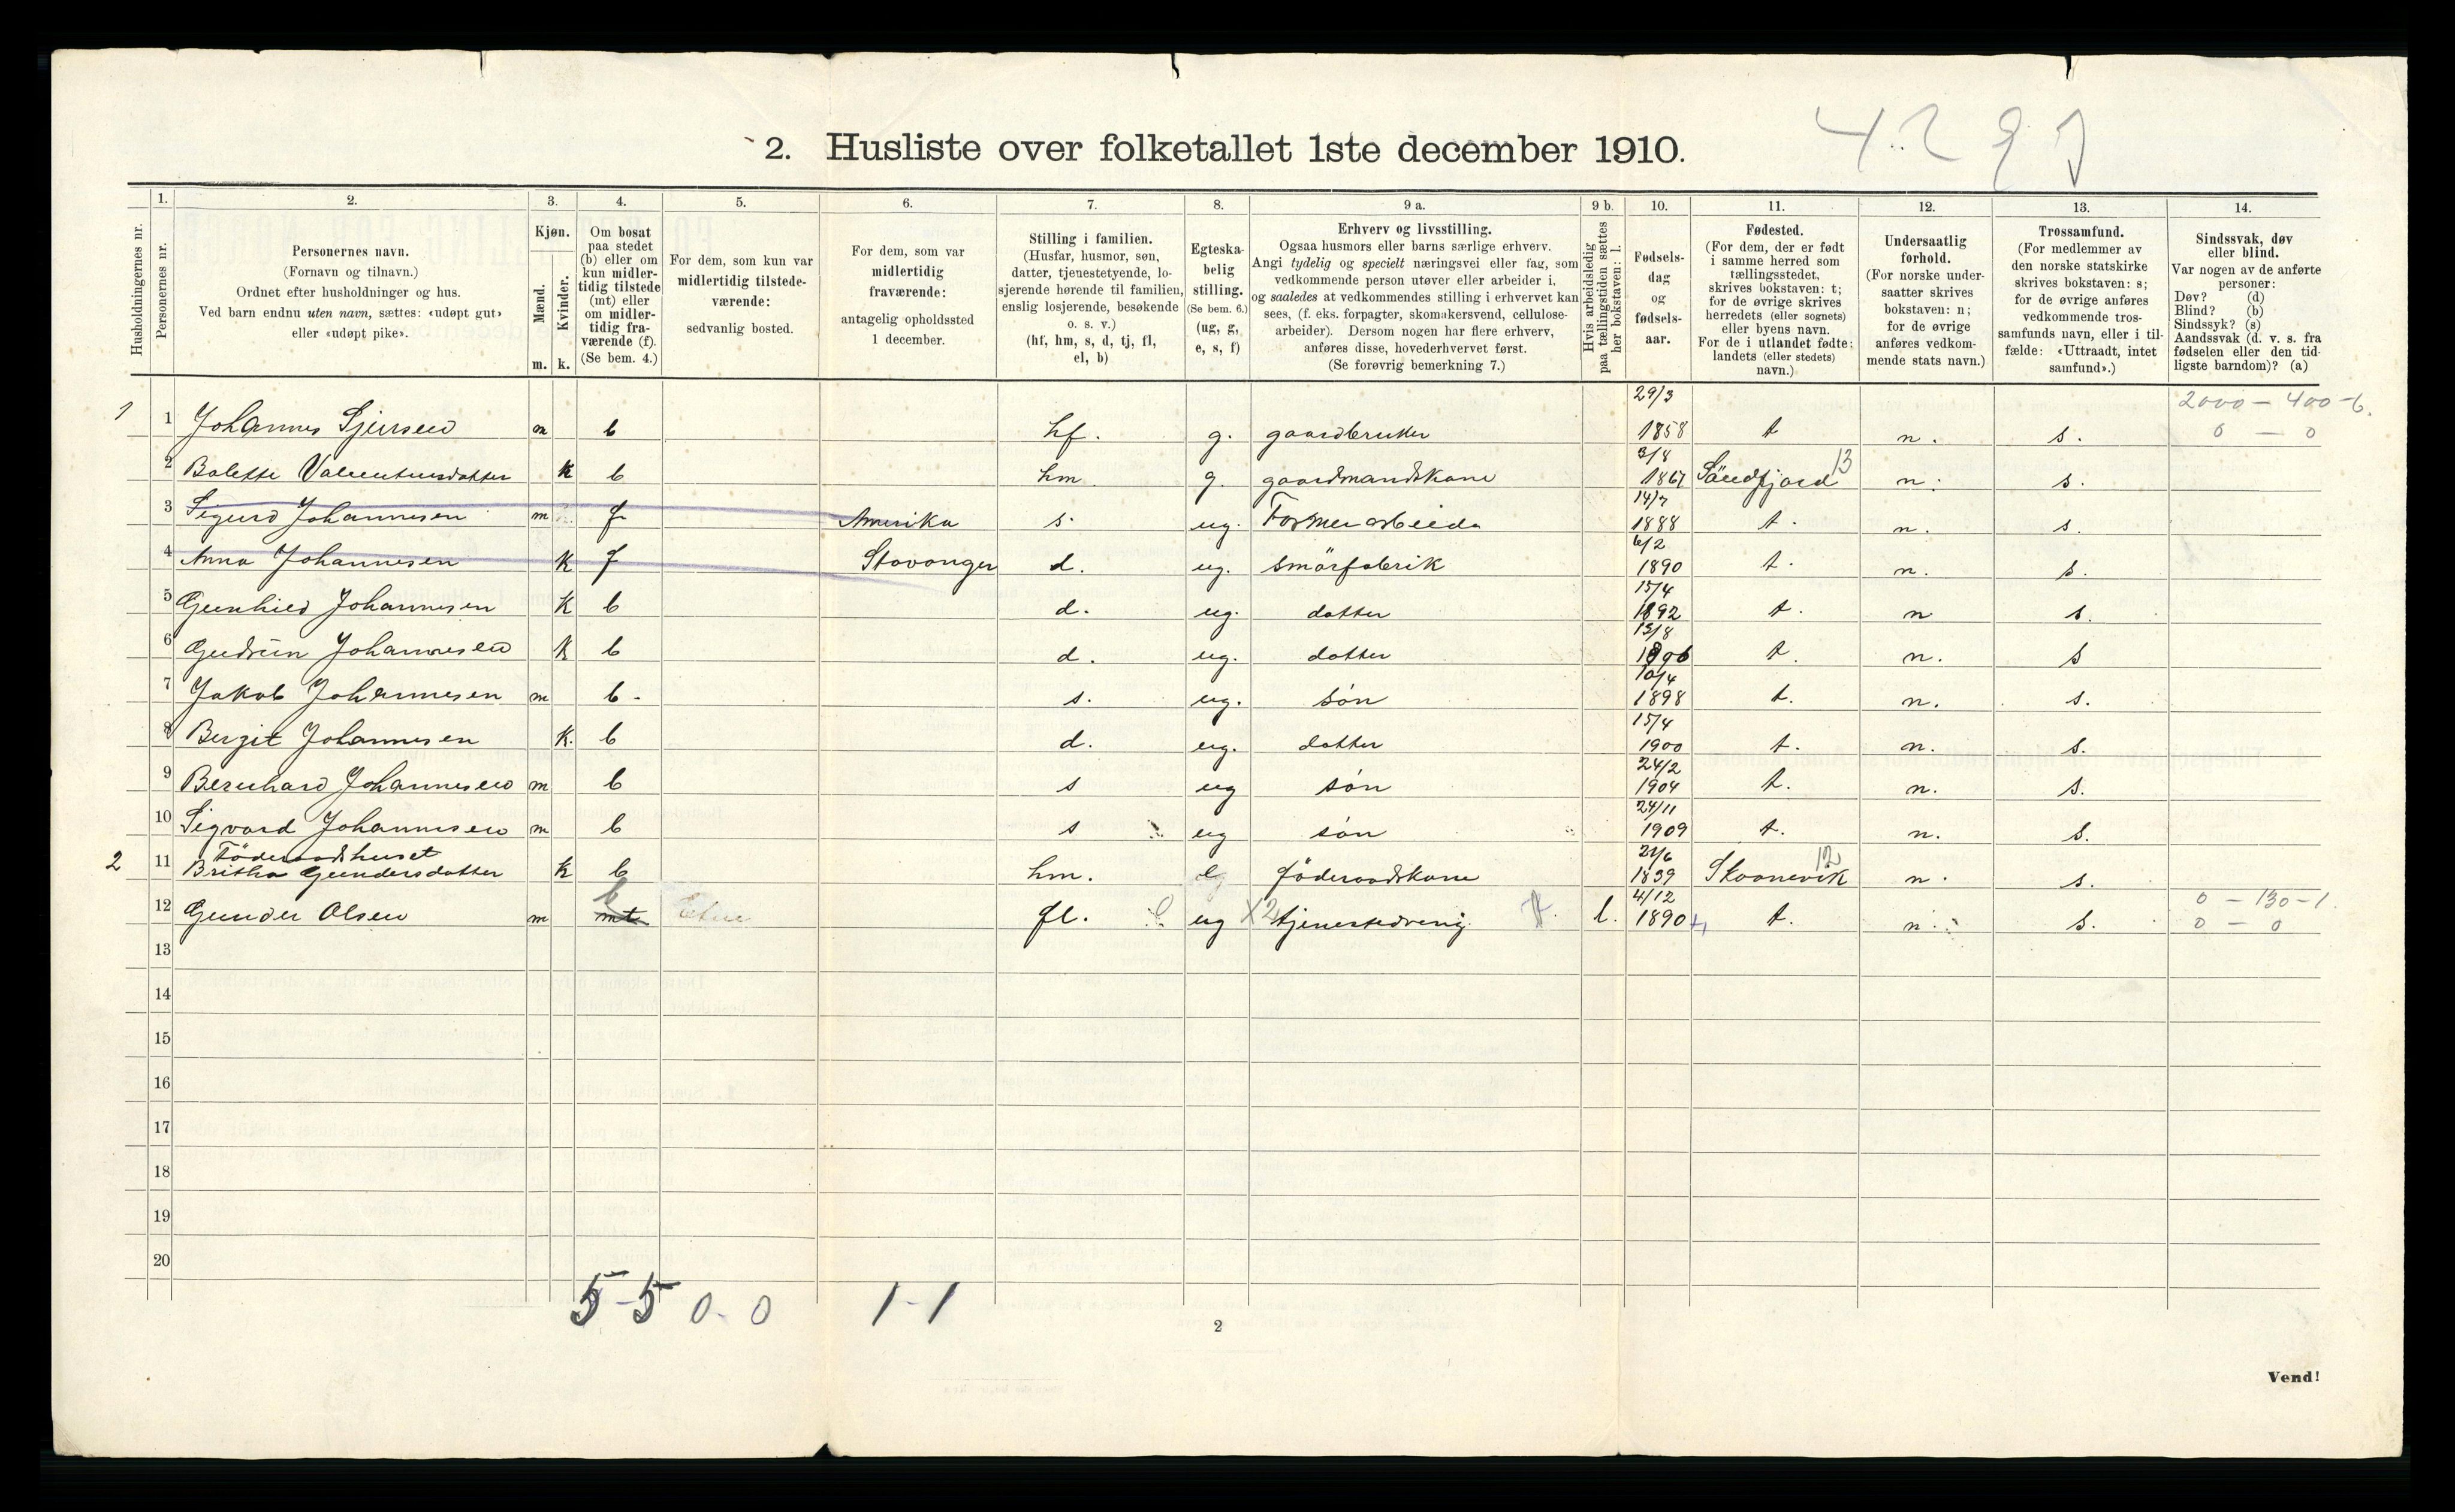 2. Husliste over folketallet 1ste december 1910.
Husholdningernes nr.
1. Personernes nr.
2. Personernes navn.
(Fornavn og tilnavn.)
Ordnet efter husholdninger og hus.
Ved barn endnu uten navn, sættes: «udøpt gut»
eller «udøpt pike».
3. Kjøn.
Mænd. m.
Kvinder. k.
4. Om bosat
paa stedet
(b) eller om
kun midler-
tidig tilstede
(mt) eller
om midler-
tidig fra-
værende (f).
(Se bem. 4.)
5. For dem, som kun var
midlertidig tilstede-
værende:
sedvanlig bosted.
6. For dem, som var
midlertidig
fraværende:
antagelig opholdssted
1 december.
7. Stilling i familien.
(Husfar, husmor, søn,
datter, tjenestetyende, lo-
sjerende hørende til familien,
enslig losjerende, besøkende
o. s. v.)
(hf, hm, s, d, tj, fl,
el, b)
8. Egteska-
belig
stilling.
(Se bem. 6.)
(ug, g,
e, s, f)
9 a. Erhverv og livsstilling.
Ogsaa husmors eller barns særlige erhverv.
Angi tydelig og specielt næringsvei eller fag, som
vedkommende person utøver eller arbeider i,
og saaledes at vedkommendes stilling i erhvervet kan
sees, (f. eks. forpagter, skomakersvend, cellulose-
arbeider). Dersom nogen har flere erhverv,
anføres disse, hovederhvervet først.
(Se forøvrig bemerkning 7.)
9 b. Hvis arbeidsledig
paa tællingstiden sættes
her bokstaven: l.
10. Fødsels-
dag
og
fødsels-
aar.
11. Fødested.
(For dem, der er født
i samme herred som
tællingsstedet,
skrives bokstaven: t;
for de øvrige skrives
herredets (eller sognets)
eller byens navn.
For de i utlandet fødte:
landets (eller stedets)
navn.)
12. Undersaatlig
forhold.
(For norske under-
saatter skrives
bokstaven: n;
for de øvrige
anføres vedkom-
mende stats navn.)
13. Trossamfund.
(For medlemmer av
den norske statskirke
skrives bokstaven: s;
for de øvrige anføres
vedkommende tros-
samfunds navn, eller i til-
fælde: «Uttraadt, intet
samfund».)
14. Sindssvak, døv
eller blind.
Var nogen av de anførte
personer:
Døv? (d)
Blind? (b)
Sindssyk? (s)
Aandssvak (d. v. s. fra
fødselen eller den tid-
ligste barndom)? (a)
2000 – 400 – 6.
0 – 0
1 1 Johannes Sjursen m b hf. g. gaardbruker 29/3 1858 t n. s.
2 Bolette Valentinsdatter k b hm. g. gaardmandskone 3/8 1867 Söndfjord 13 n. s.
3 Sigurd Johannesen m f Amerika s. ug. Farmerarbeide 14/7 1888 t. n. s.
4 Anna Johannesen k f Stavanger d. ug. smörfabrik 6/2 1890 t. n. s.
5 Gunhild Johannesen k b d. ug. datter 15/4 1892 t. n s.
6 Gudrün Johannesen k b d. ug. datter 13/8 1896 t. n. s
7 Jakob Johannesen m b - s. ug. søn 10/4 1898 t. n. s.
8 Bergit Johannesen k. b d. ug. datter 15/4 1900 t. n. s.
9 Bernhard Johannesen m b s ug søn 24/2 1904 t. n. s.
10 Sigvard Johannesen m b s ug søn 24/11 1909 t. n. s.
Föderaadshuset
2 11 Britha Gundersdatter k b hm. e föderaadskone 21/6 1839 Skaanevik 12 n. s.
0 – 130 – 1.
0 – 0
12 Gunder Olsen m mt b Etne fl. ug X2 tjenestedreng l. 4/12 1890 t. n. s.
13
14
15
16
17
18
19
20
5 - 5 0 - 0 1 - 1
2
Vend!